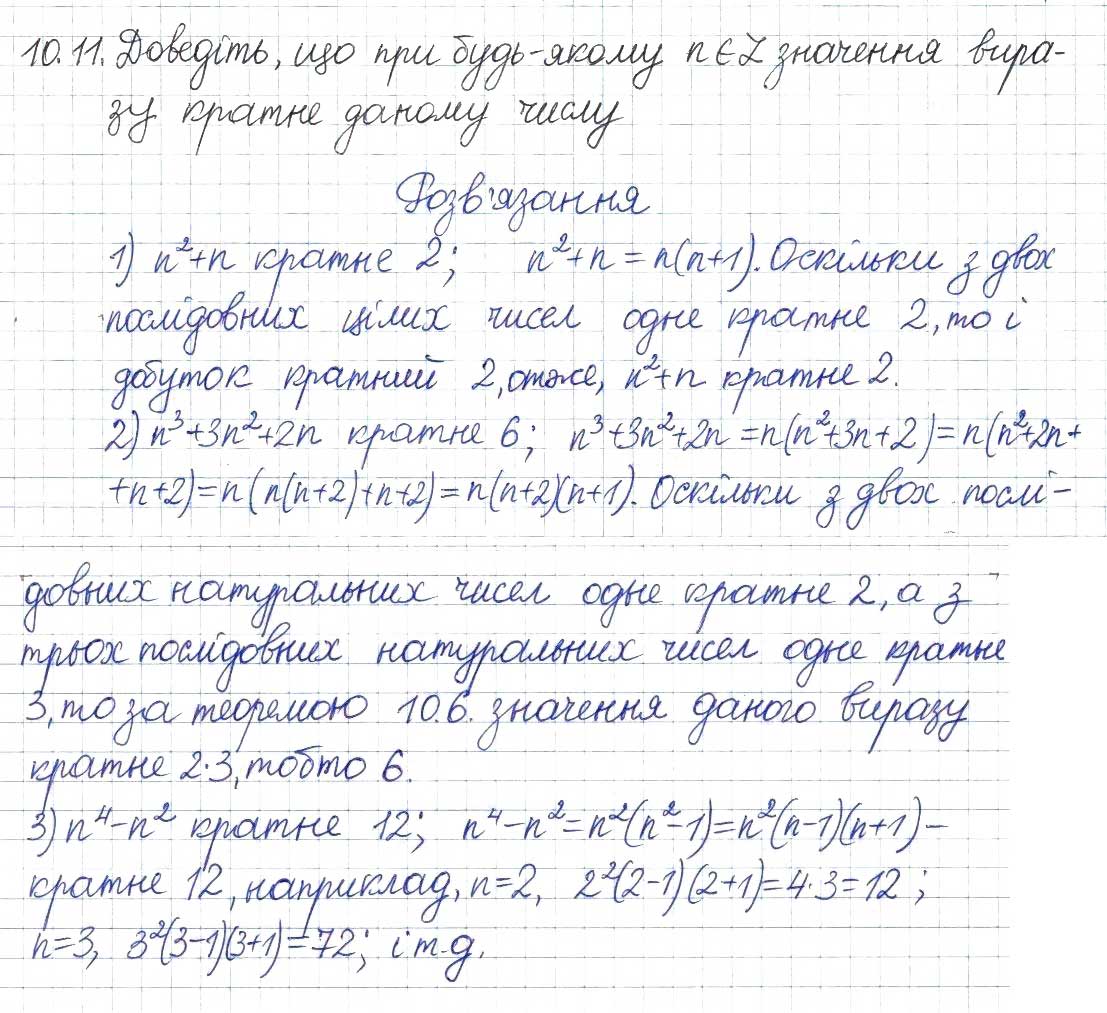 10.11. Доведіть, що при будь-якому n∈Z значення вира-
зу кратне даному числу
Розв'язання
1) n²+n кратне 2; n²+n = n(n+1). Оскільки з двох
послідовних цілих чисел одне кратне 2, то і
добуток кратний 2, отже, n²+n кратне 2.
2) n³+3n²+2n кратне 6; n³+3n²+2n = n(n²+3n+2) = n(n²+2n+
+n+2) = n(n(n+2)+n+2) = n(n+2)(n+1). Оскільки з двох послі-
довних натуральних чисел одне кратне 2, а з
трьох послідовних натуральних чисел одне кратне
3, то за теоремою 10.6. значення даного виразу
кратне 2·3, тобто 6.
3) n⁴-n² кратне 12; n⁴-n² = n²(n²-1) = n²(n-1)(n+1) –
кратне 12, наприклад, n=2, 2²(2-1)(2+1)=4·3=12;
n=3, 3²(3-1)(3+1)=72; і т.д.